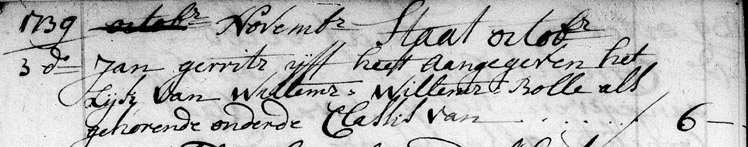 1739 octobr Novembr Staat octobr
3 de Jan gerritz ijft heeft Aangegeven het
Lijk van Willemz = Willemz = Bolle als
gehorende onderde Classis van . . . . . / 6 —